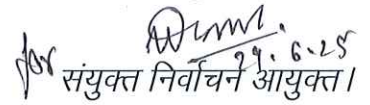 29.6.25
for
संयुक्त निर्वाचन आयुक्त।